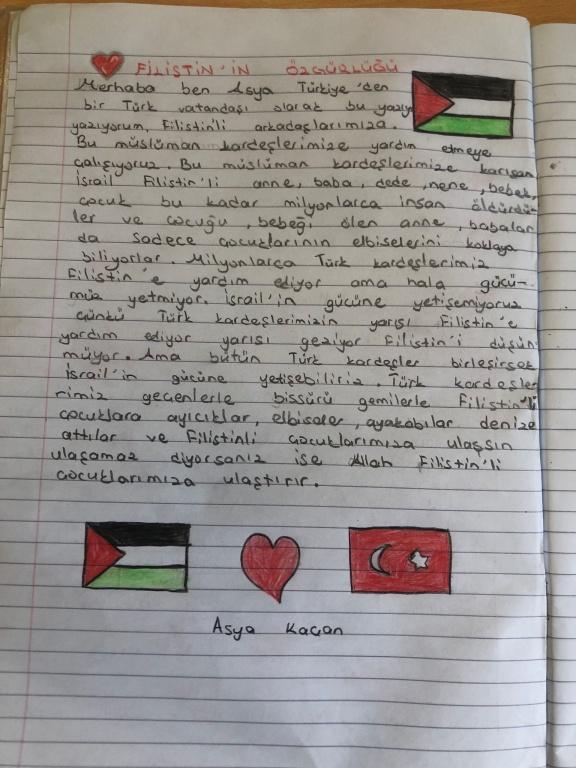 FİLİSTİN'İN ÖZGÜRLÜĞÜ
Merhaba ben Asya Türkiye'den
bir Türk vatandaşı olarak bu yazıyı
yazıyorum, Filistin'li arkadaşlarımıza.
Bu müslüman kardeşlerimize yardım etmeye
çalışıyoruz. Bu müslüman kardeşlerimize karışan
İsrail Filistin'li anne, baba, dede, nene, bebek,
çocuk bu kadar milyonlarca insan öldürdü-
ler ve çocuğu, bebeği ölen anne, babalar
da sadece çocuklarının elbiselerini koklaya
biliyorlar. Milyonlarca Türk kardeşlerimiz
Filistin'e yardım ediyor ama hala gücü-
müz yetmiyor. İsrail'in gücüne yetişemiyoruz
çünkü Türk kardeşlerimizin yarısı Filistin'e
yardım ediyor yarısı geziyor Filistin'i düşün
müyor. Ama bütün Türk kardeşler birleşirsek
İsrail'in gücüne yetişebiliriz. Türk kardeşle
rimiz geçenlerle bissürü gemilerle Filistin'li
çocuklara ayıcıklar, elbiseler, ayakabılar denize
attılar ve Filistinli çocuklarımıza ulaşsın
ulaşamaz diyorsanız ise Allah Filistin'li
çocuklarımıza ulaştırır.
Asya Kaçan